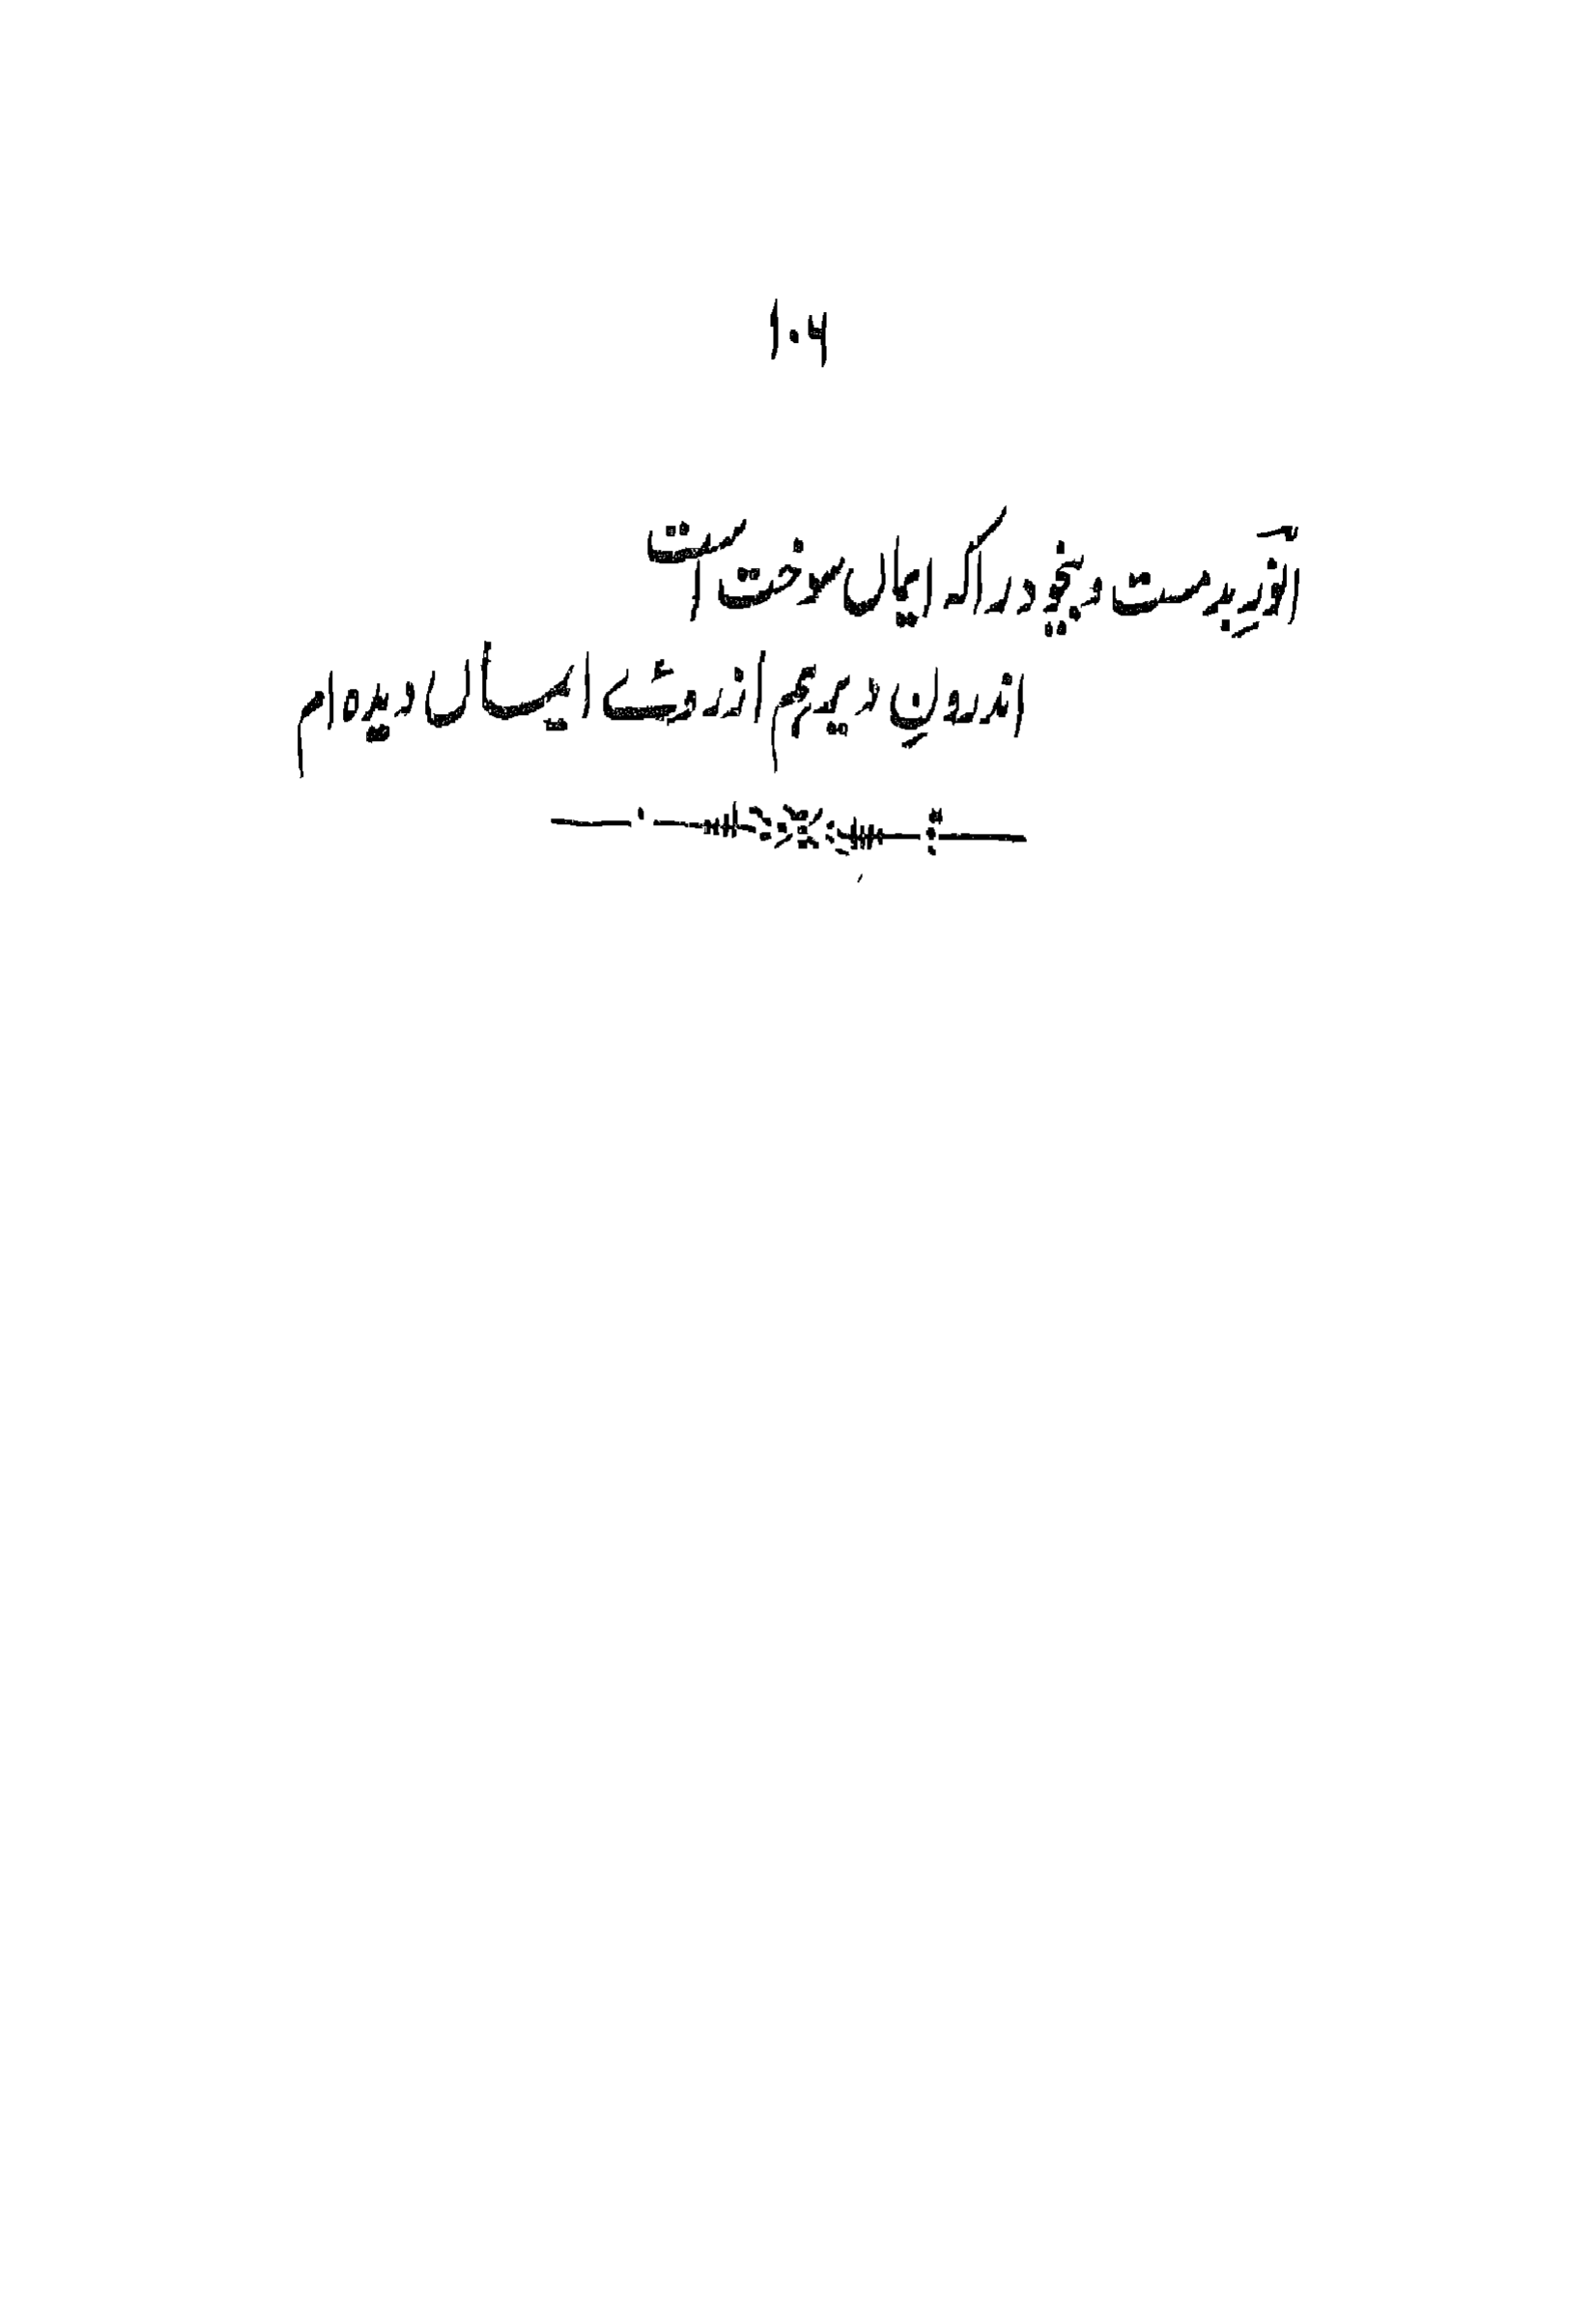 ۱۰۶
انورِ بدمست و بیخود را که ایماں سوخت است
اندرونِ دیر ہم از روئے ایماں دیدہ ام